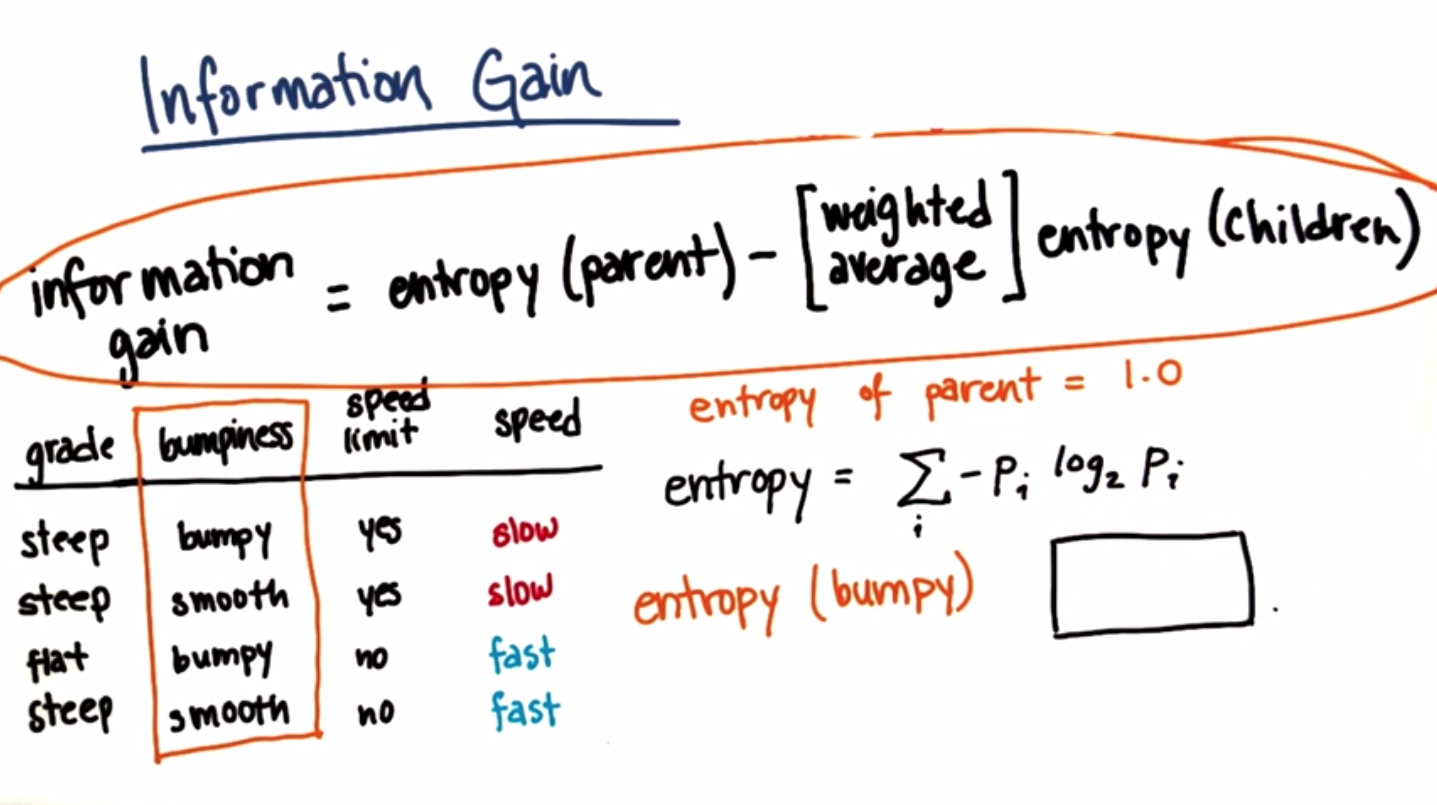 Information Gain
information gain = entropy (parent) - [weighted average] entropy (children)
grade bumpiness speed limit speed
steep bumpy yes slow
steep smooth yes slow
flat bumpy no fast
steep smooth no fast
entropy of parent = 1.0
entropy = ∑i - Pi log2 Pi
entropy (bumpy)